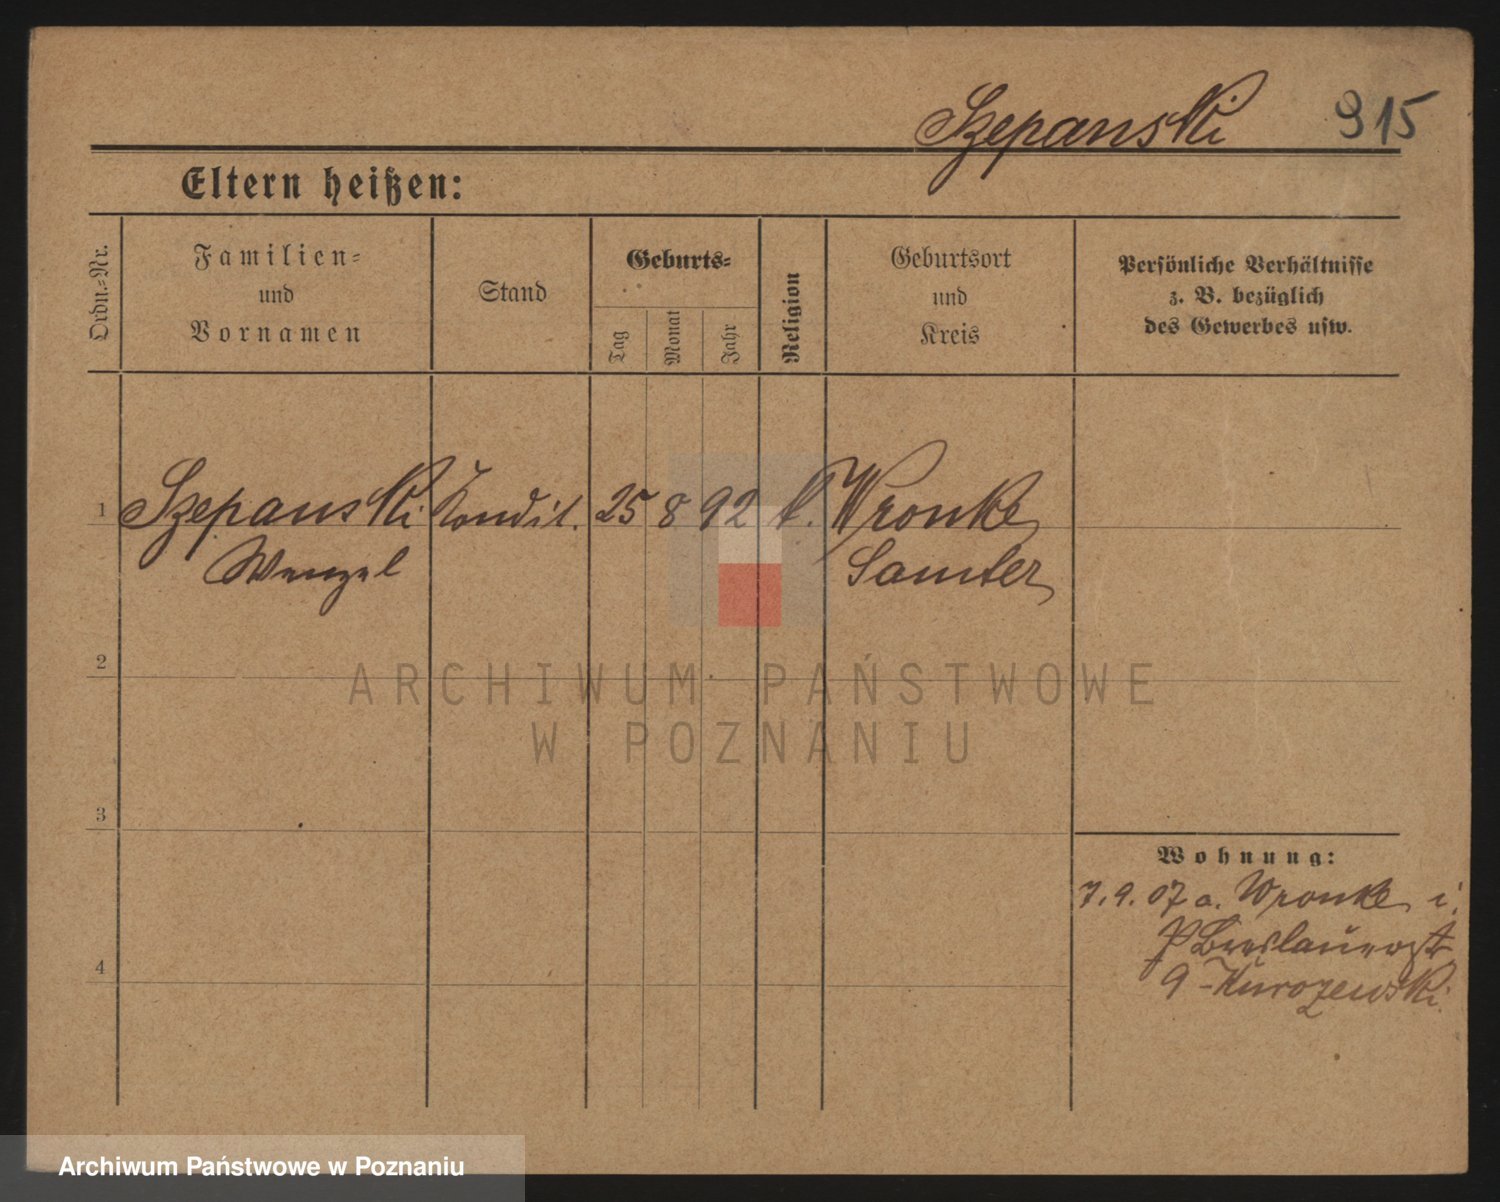 Szepanski 315
Eltern heißen:
Ordn.-Nr.
Familien-
und
Vornamen
Stand
Geburts-
Tag
Monat
Jahr
Religion
Geburtsort
und
Kreis
Persönliche Verhältnisse
z. B. bezüglich
des Gewerbes usw.
1 Szepanski Kondit. 25 8 92 k. Wronke
Wenzel Samter
2
ARCHIWUM PAŃSTWOWE
W POZNANIU
3
Wohnung:
7.9.07 a. Wronke i.
P Breslauerstr
9 - Kurozewski.
4
Archiwum Państwowe w Poznaniu